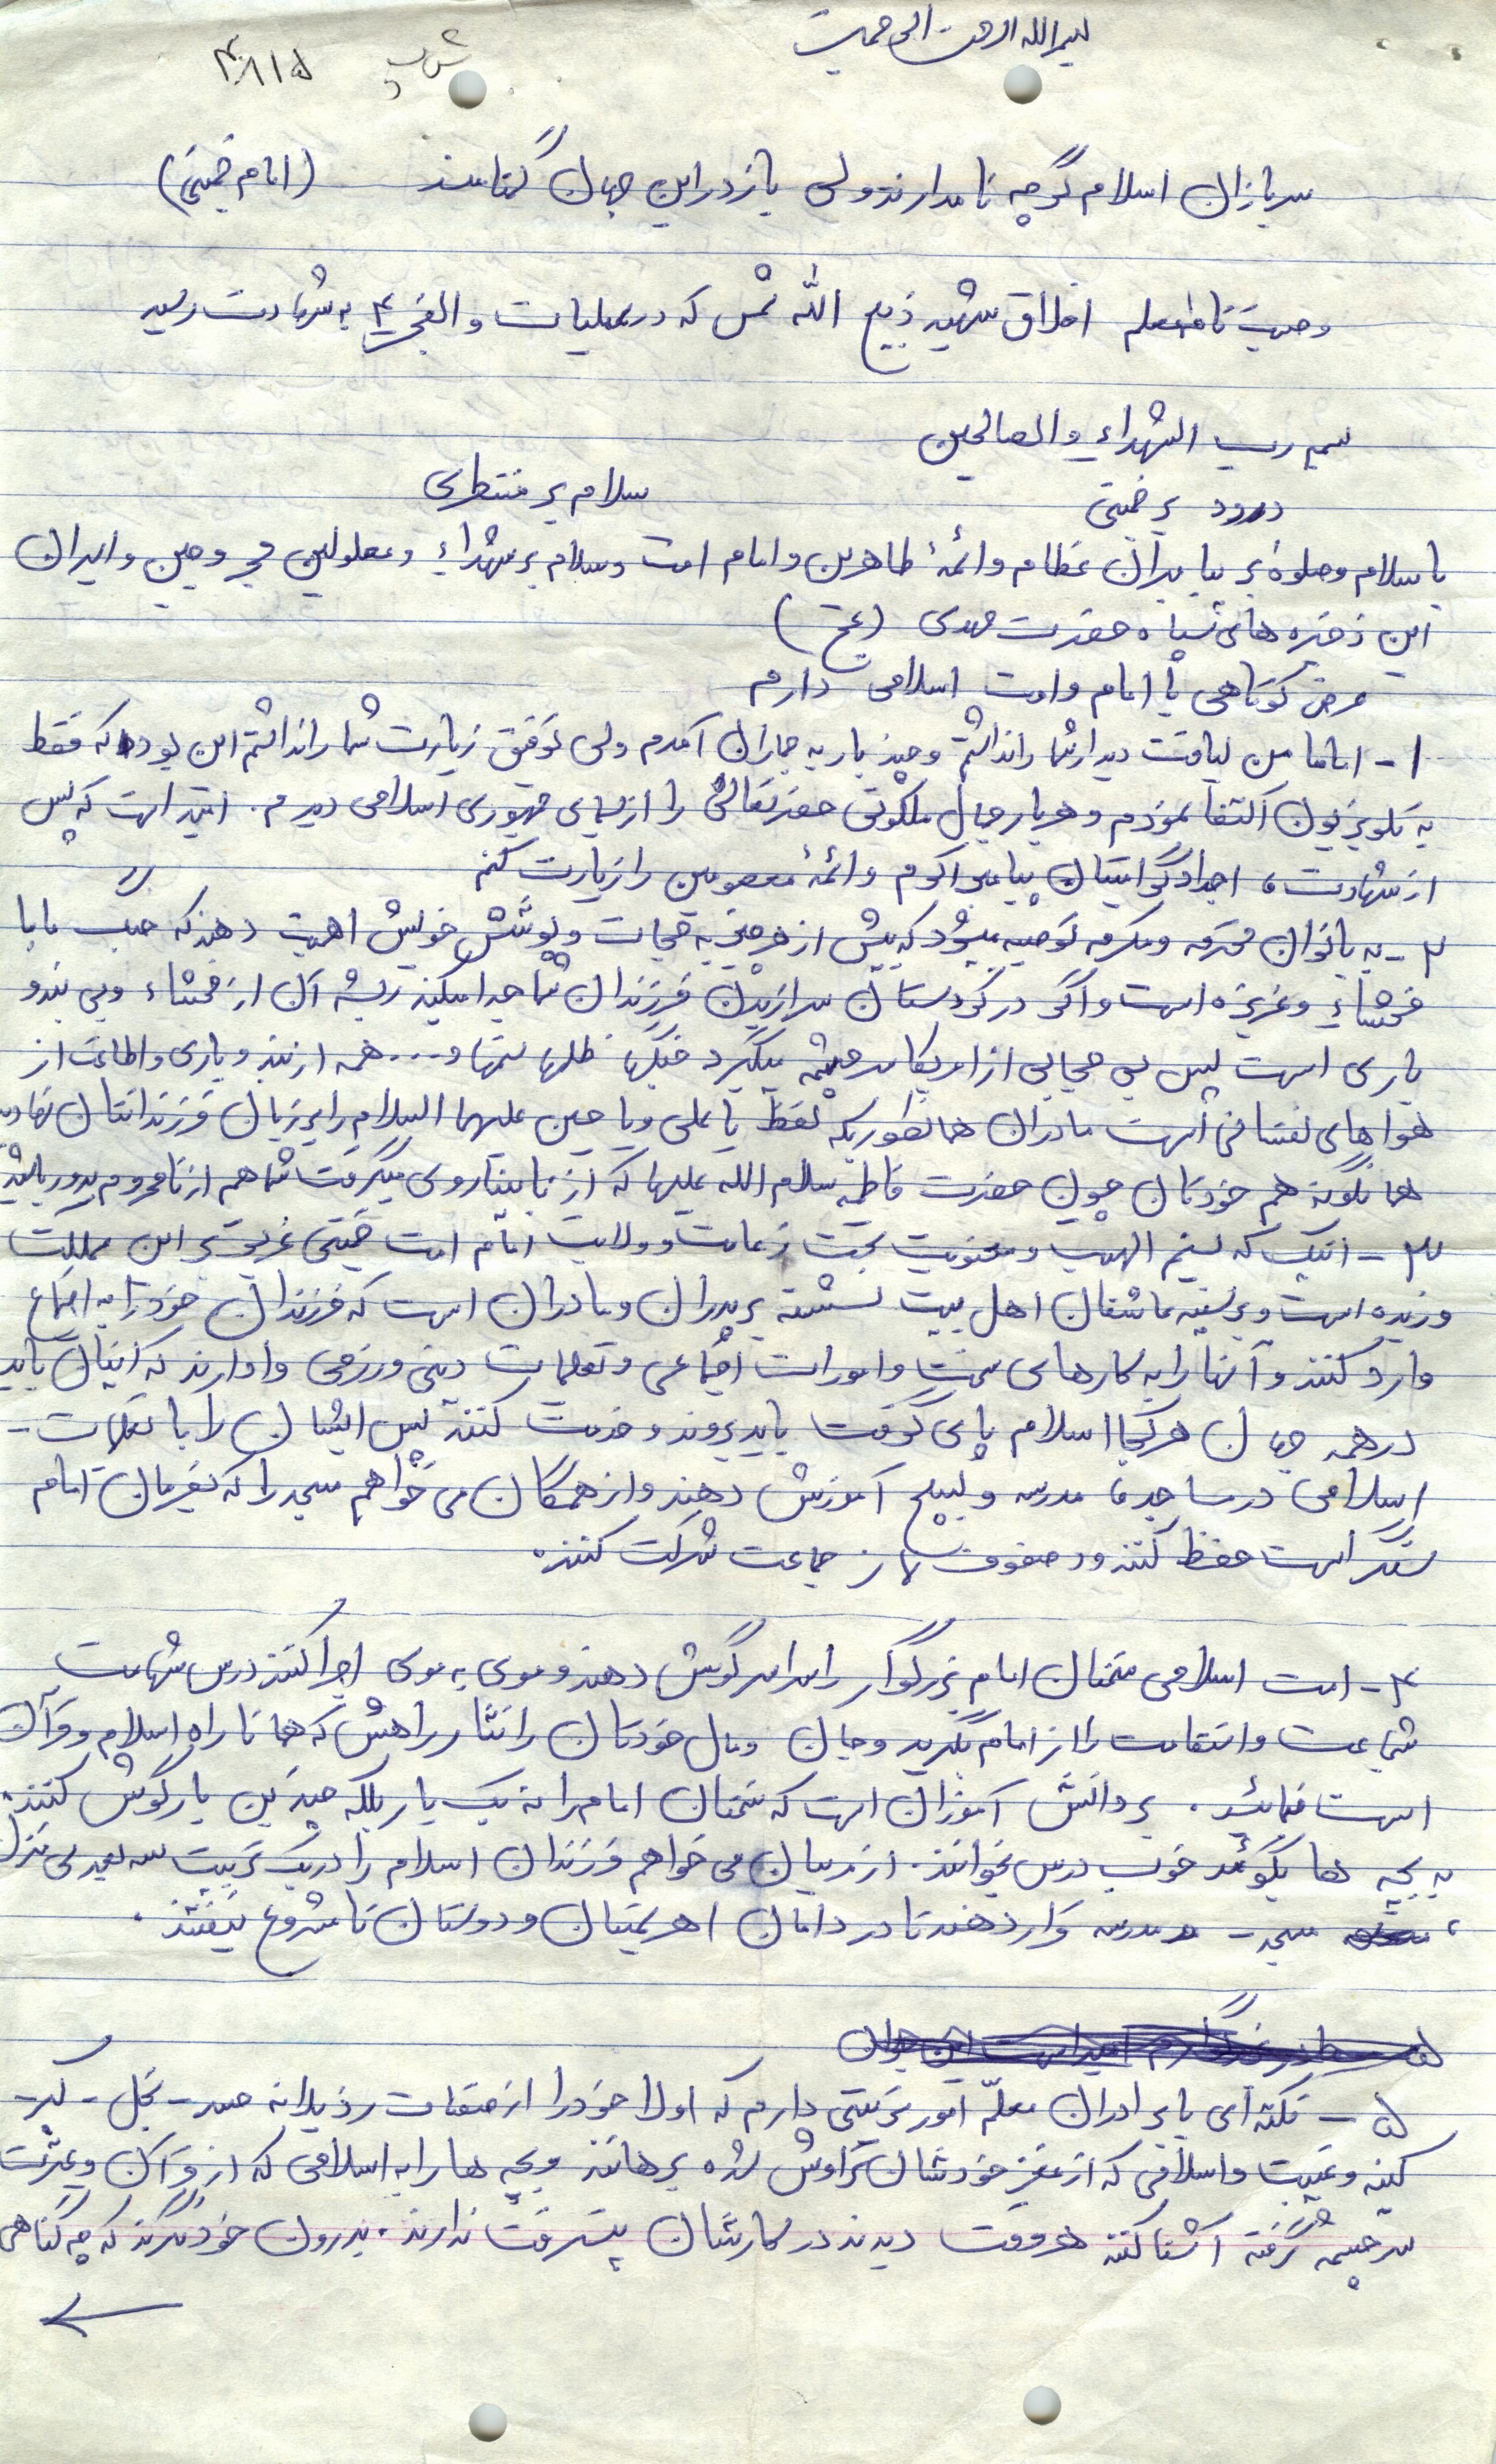 بسم الله الرحمن الرحیم
۴۸۱۱۵
سربازان اسلام گرچه نامدارند ولی باز در این جهان گمنامند (امام خمینی)
وصیت نامه معلم اخلاق شهید ذبیح الله شمس که در عملیات والفجر ۴ به شهادت رسید
بسم رب الشهداء والصالحین
درود بر خمینی سلام بر منتظری
با سلام و صلوة بر پیامبران عظام و ائمهٔ طاهرین و امام امت و سلام بر شهداء و معلولین مجروحین و اسیران
این ذخیره های سپاه حضرت مهدی (عج)
عرض کوتاهی با امام و امت اسلامی دارم
۱- اماما من لیاقت دیدار شما را نداشتم و چند بار به جماران آمدم ولی توفیق زیارت شما را نداشتم این بود که فقط
به تلویزیون اکتفا نمودم و هر بار جمال ملکوتی حضرتعالی را از سیمای جمهوری اسلامی دیدم. امید است که پس
از شهادت، اجداد گرامیتان پیامبر اکرم و ائمهٔ معصومین را زیارت کنم
۲- به بانوان محترمه و مکرمه توصیه میشود که بیش از هر چیز به حجاب و پوشش خویش اهمیت دهند که جنگ ما با
فحشاء و غریزه است و اگر در کردستان سر از بدن فرزندان شما جدا میکنند ریشه آن از فحشاء و بی بندو
باری است پس بی حجابی از امریکا سرچشمه میگیرد جنگها ظلمها ستمها و... همه از بند و باری و اطاعت از
هواهای نفسانی است مادران همانطوریکه لفظ یا علی و یا حسین علیهما السلام را بر زبان فرزندانتان نهادید
همانگونه هم خودتان چون حضرت فاطمه سلام الله علیها که از نابینا روی میگرفت شما هم از نامحروم بدور باشید
۳- اینک که نسیم الهیت و معنویت تحت زعامت و ولایت امام امت خمینی عزیز بر این مملکت
وزیده است و بر سینه عاشقان اهل بیت نشسته بر پدران و مادران است که فرزندان خود را به اجتماع
وارد کنند و آنها را به کارهای سخت و امورات اجتماعی و تعلیمات دینی و رزمی وادارند که اینان باید
در همه جهان هر کجا اسلام پای گرفت باید بروند و خدمت کنند پس ایشان را با تعلیمات -
اسلامی در مساجد، مدرسه و بسیج آموزش دهند و از همگان می خواهم مسجد را که بفرمان امام
سنگر است حفظ کنند و در صفوف نماز جماعت شرکت کنند.
۴- امت اسلامی سخنان امام بزرگوار را سراسر گوش دهند و موی به موی اجرا کنند درس شهامت
شجاعت و استقامت را از امام بگیرید و جان و مال خودتان را نثار راهش که همانا راه اسلام و قرآن
است نمائید. بر دانش آموزان است که سخنان امام را نه یک بار بلکه چندین بار گوش کنند.
به بچه ها بگوئید خوب درس بخوانند. از مربیان می خواهم فرزندان اسلام را در یک تربیت سه بعدی منزل
، مسجد - مدرسه قرار دهند تا در دامان اهریمنان و دوستان نامشروع نیفتند.
۵- نکته ای با برادران معلّم امور تربیتی دارم که اولا خود را از صفات رذیلانه حسد - بخل - کبر -
کینه و غیبت و اسلامی که از مغز خودشان تراوش شده برهانند و بچه ها را به اسلامی که از قرآن و عترت
سرچشمه گرفته آشنا کنند هر وقت دیدند در کارشان پیشرفت ندارند. بدرون خود نگرند که چه گناهی